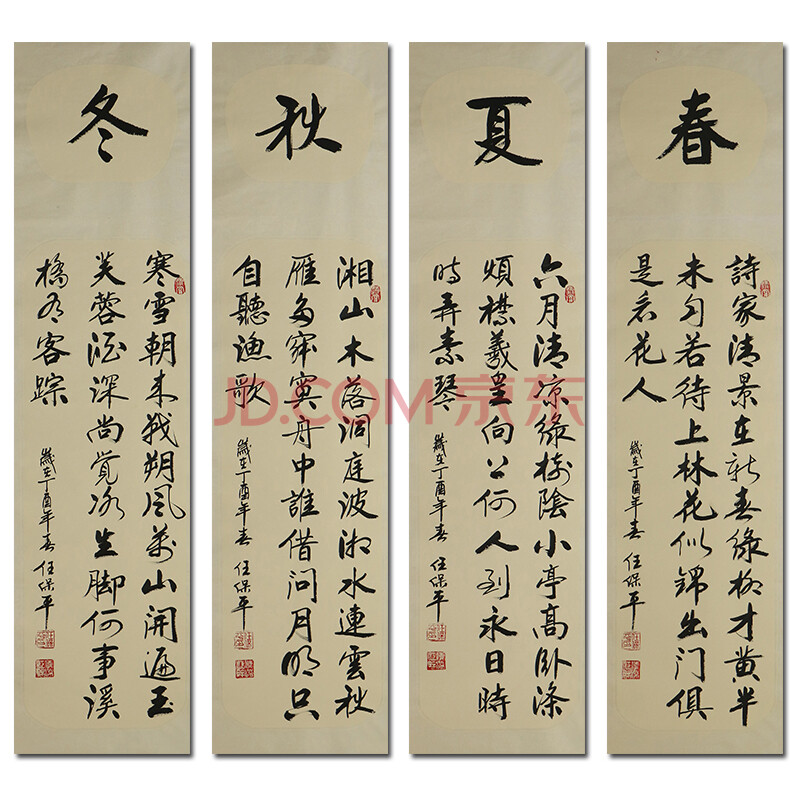 春
詩家清景在新春緑柳才黄半
未匀若待上林花似錦出门俱
是看花人
歲在丁酉年春 任保平
夏
六月清凉緑樹陰小亭高卧滌
煩襟羲皇向上何人到永日時
時弄素琴
歲在丁酉年春 任保平
秋
湘山木落洞庭波湘水連雲秋
雁多寂寞舟中誰借問月明只
自聽漁歌
歲在丁酉年春 任保平
冬
寒雪朝来戰朔風萬山開遍玉
芙蓉酒深尚覺冰生脚何事溪
橋有客踪
歲在丁酉年春 任保平
JD.COM 京东